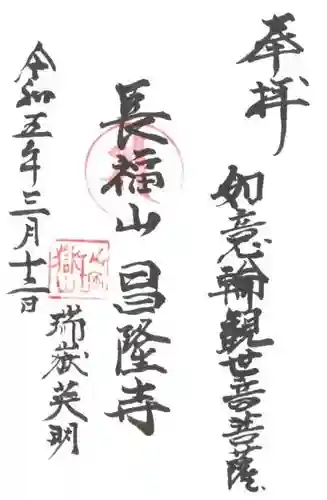 奉拝
如意輪観世音菩薩
長福山 昌隆寺
令和五年三月十三日
瑞嶽英明